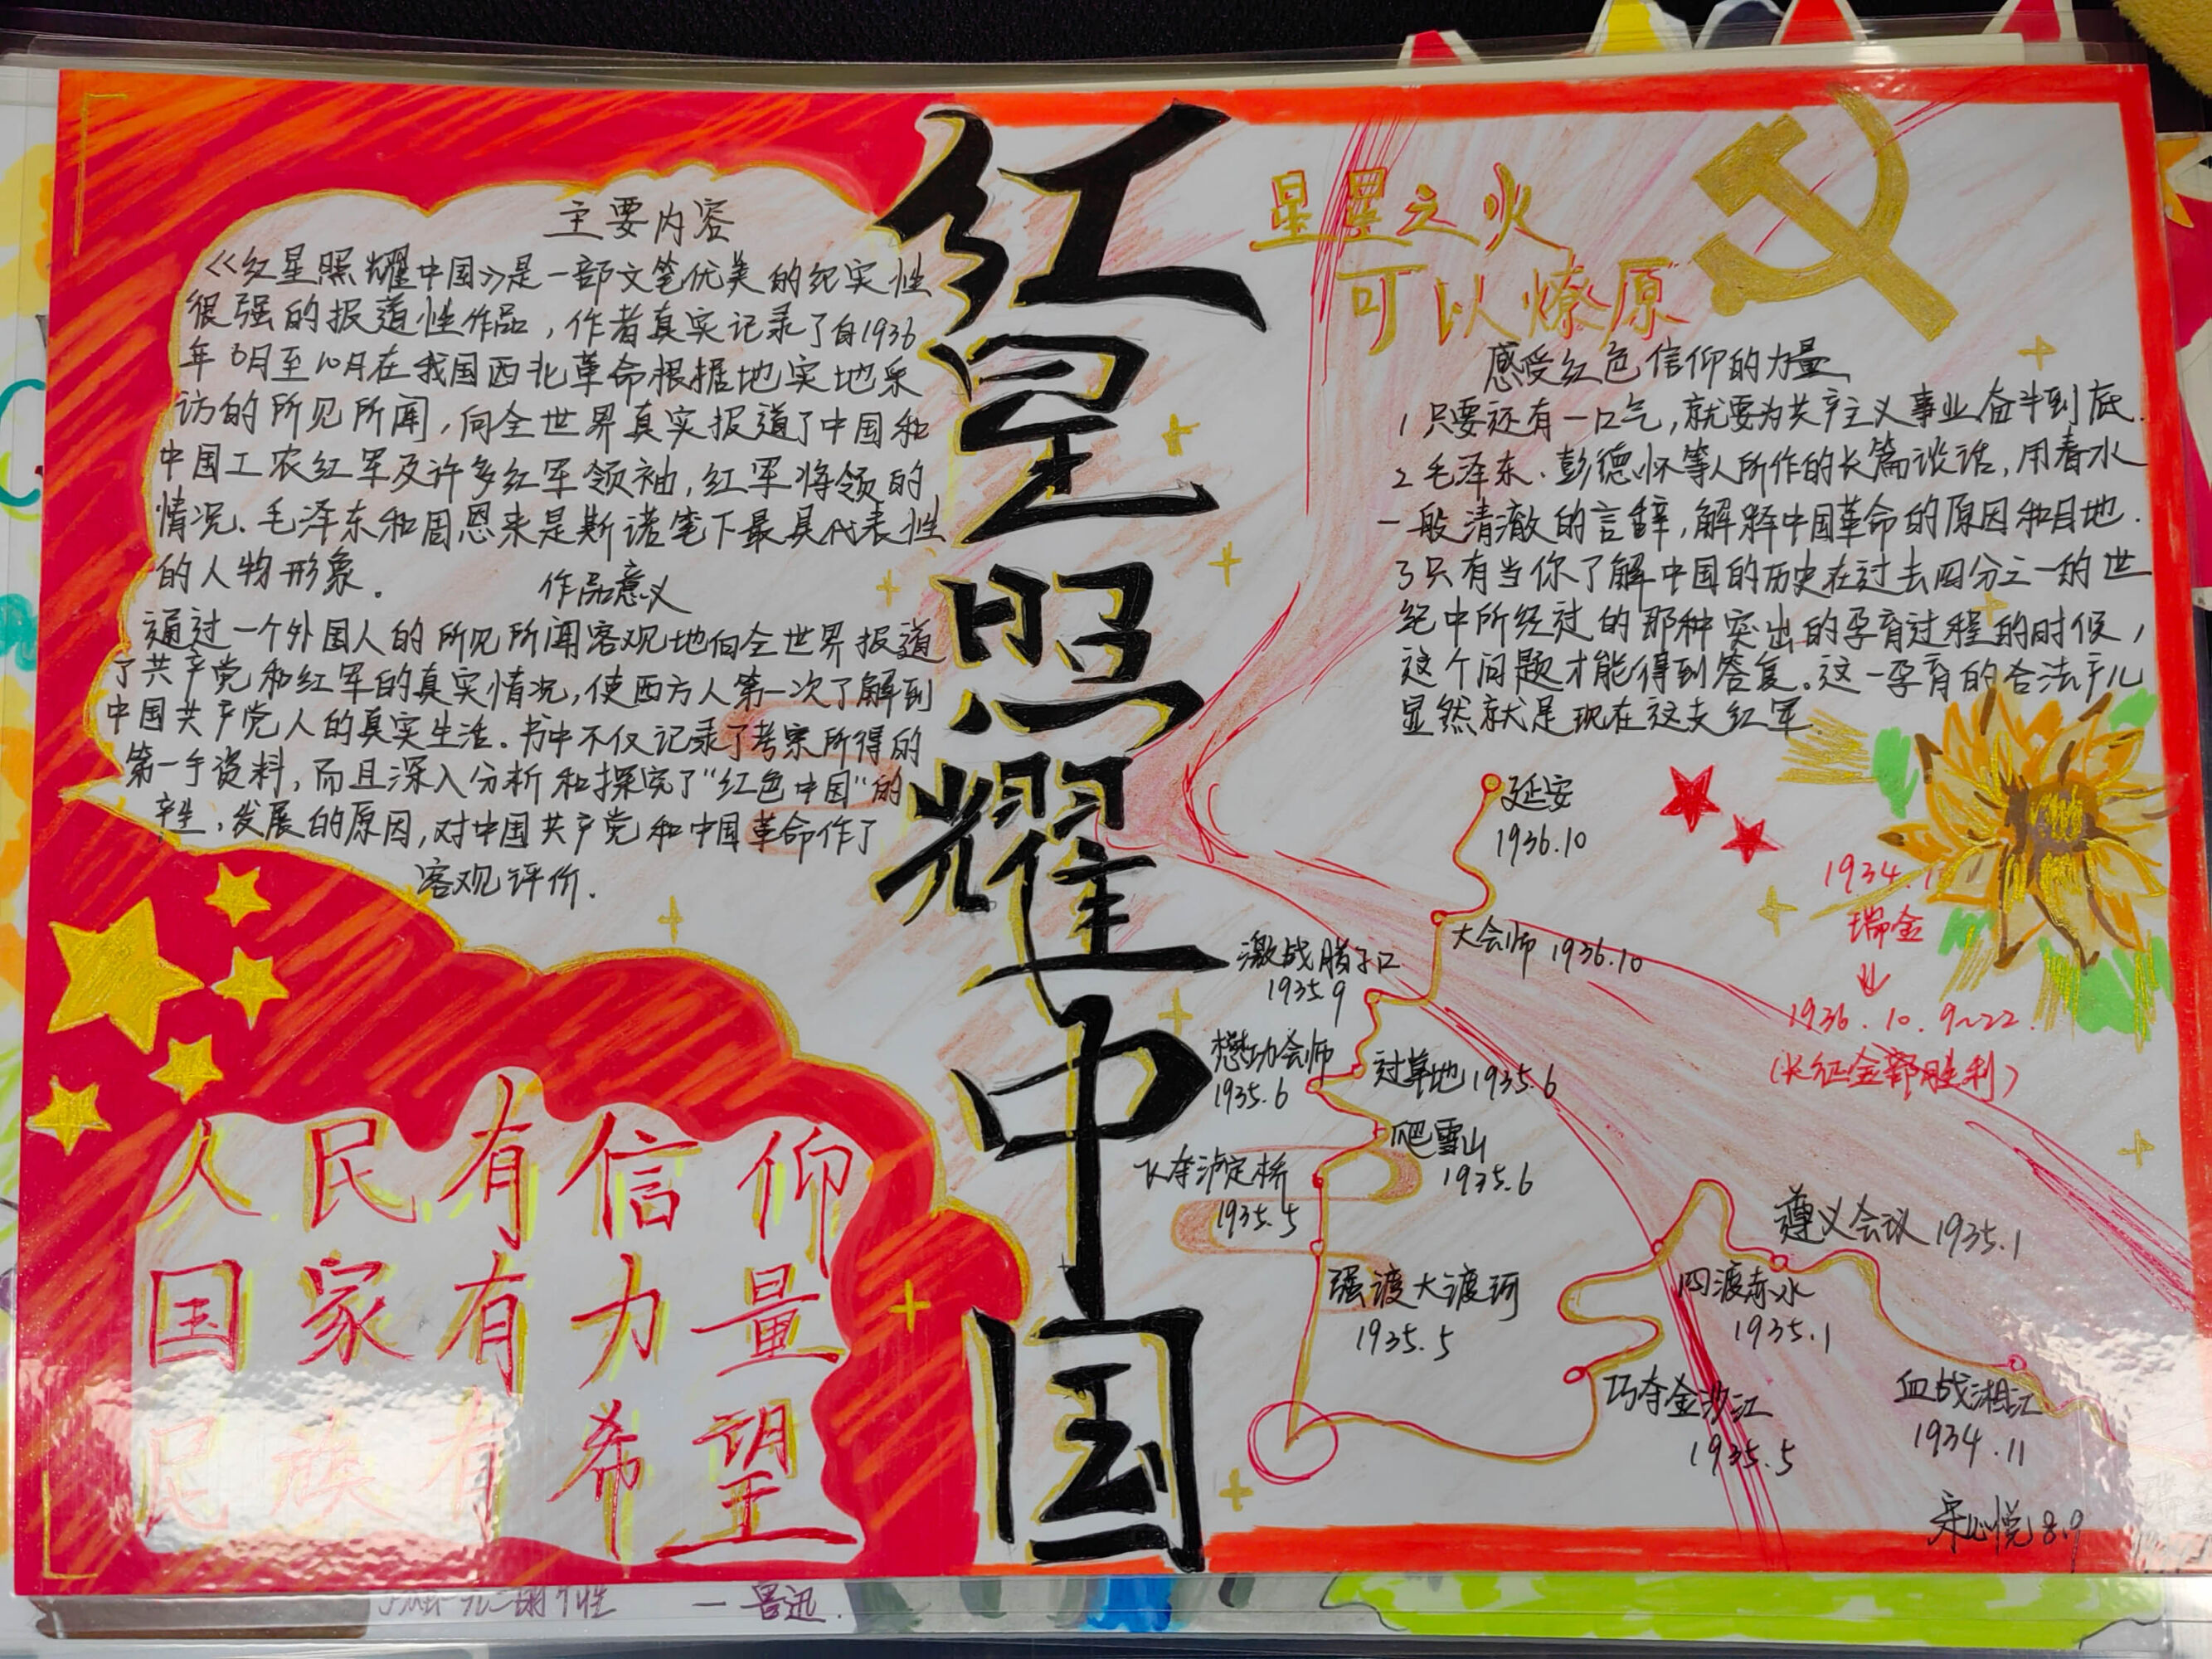 红星照耀中国
主要内容
《红星照耀中国》是一部文笔优美的纪实性
很强的报道性作品,作者真实记录了自1936
年6月至10月在我国西北革命根据地实地采
访的所见所闻,向全世界真实报道了中国和
中国工农红军及许多红军领袖,红军将领的
情况、毛泽东和周恩来是斯诺笔下最具代表性
的人物形象.
作品意义
通过一个外国人的所见所闻客观地向全世界报道
了共产党和红军的真实情况,使西方人第一次了解到
中国共产党人的真实生活.书中不仅记录了考察所得的
第一手资料,而且深入分析和探究了“红色中国”的
产生,发展的原因,对中国共产党和中国革命作了
客观评价.
人民有信仰
国家有力量
民族有希望
星星之火
可以燎原
感受红色信仰的力量
1 只要还有一口气,就要为共产主义事业奋斗到底.
2 毛泽东、彭德怀等人所作的长篇谈话,用春水
一般清澈的言辞,解释中国革命的原因和目地.
3 只有当你了解中国的历史在过去四分之一的世
纪中所经过的那种突出的孕育过程的时候,
这个问题才能得到答复。这一孕育的合法产儿
显然就是现在这支红军.
延安
1936.10
大会师 1936.10
激战腊子口
1935.9
懋功会师
1935.6
过草地 1935.6
爬雪山
1935.6
飞夺泸定桥
1935.5
强渡大渡河
1935.5
遵义会议 1935.1
四渡赤水
1935.1
巧夺金沙江
1935.5
血战湘江
1934.11
1934.1
瑞金
1936.10.9~22.
(长征全部胜利)
宋心悦 8.9
—鲁迅.